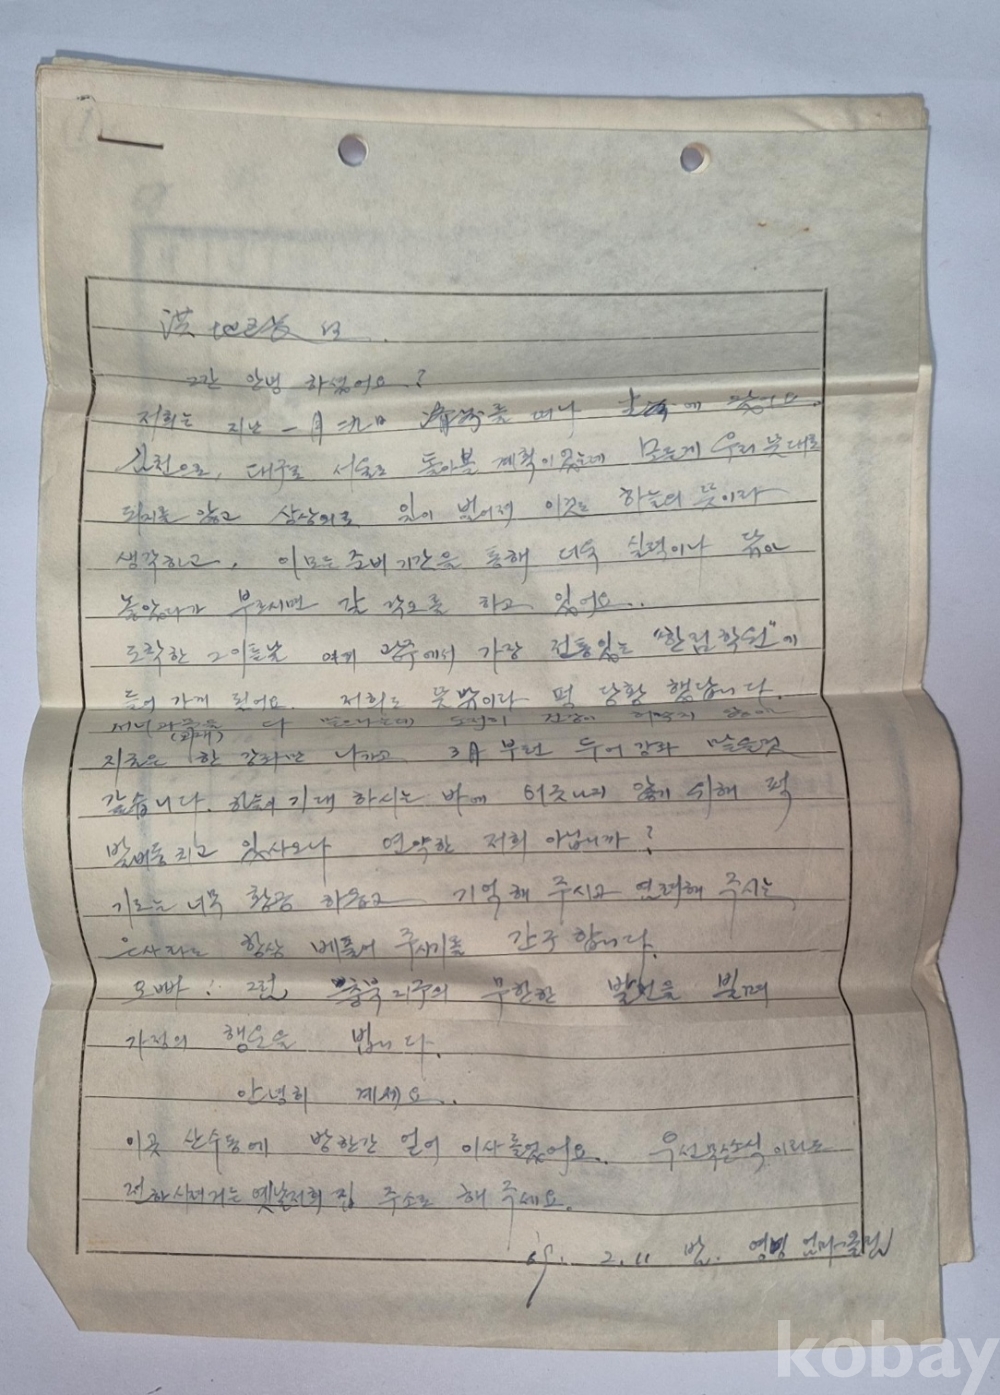 洪地區長님.
그간 안녕 하셨어요?
저희는 지난 一月 를 떠나 에 왔어요.
김천으로, 대구로 서울로 돌아볼 계획이었는데 모든게 우리 뜻대로
되지를 않고 상상외로 일이 벌어져 이것도 하늘의 뜻이라
생각하고, 이 모든 준비기간을 통해 더욱 실력이나 닦아
놓았다가 부르시면 갈 각오를 하고 있어요..
도착한 그이튿날 여기 광주에서 가장 전통있는 "한림학원"에
들어 가게 됐어요. 저희도 뜻밖이라 퍽 당황 했답니다.
다
지금은 한 강좌만 나가고 3月 부턴 두어강좌 맡을것
같습니다. 하늘이 기대 하시는 바에 어긋나지 않기 위해 퍽
발버둥치고 있사오나 연약한 저희 아닙니까?
너무 기억해 주시고 염려해 주시는
항상 베풀어 주시기를 간구 합니다.
오빠! 그럼 충북지구의 무한한 발전을 빌며
가정의 행운을 빕니다.
안녕히 계세요..
이곳 산수동에 방한간 얻어 이사들었어요.. 우선
전하시려거든 옛날저희 집 주소로 해 주세요.
69. 2. 11 밤. 영명 엄마
kobay